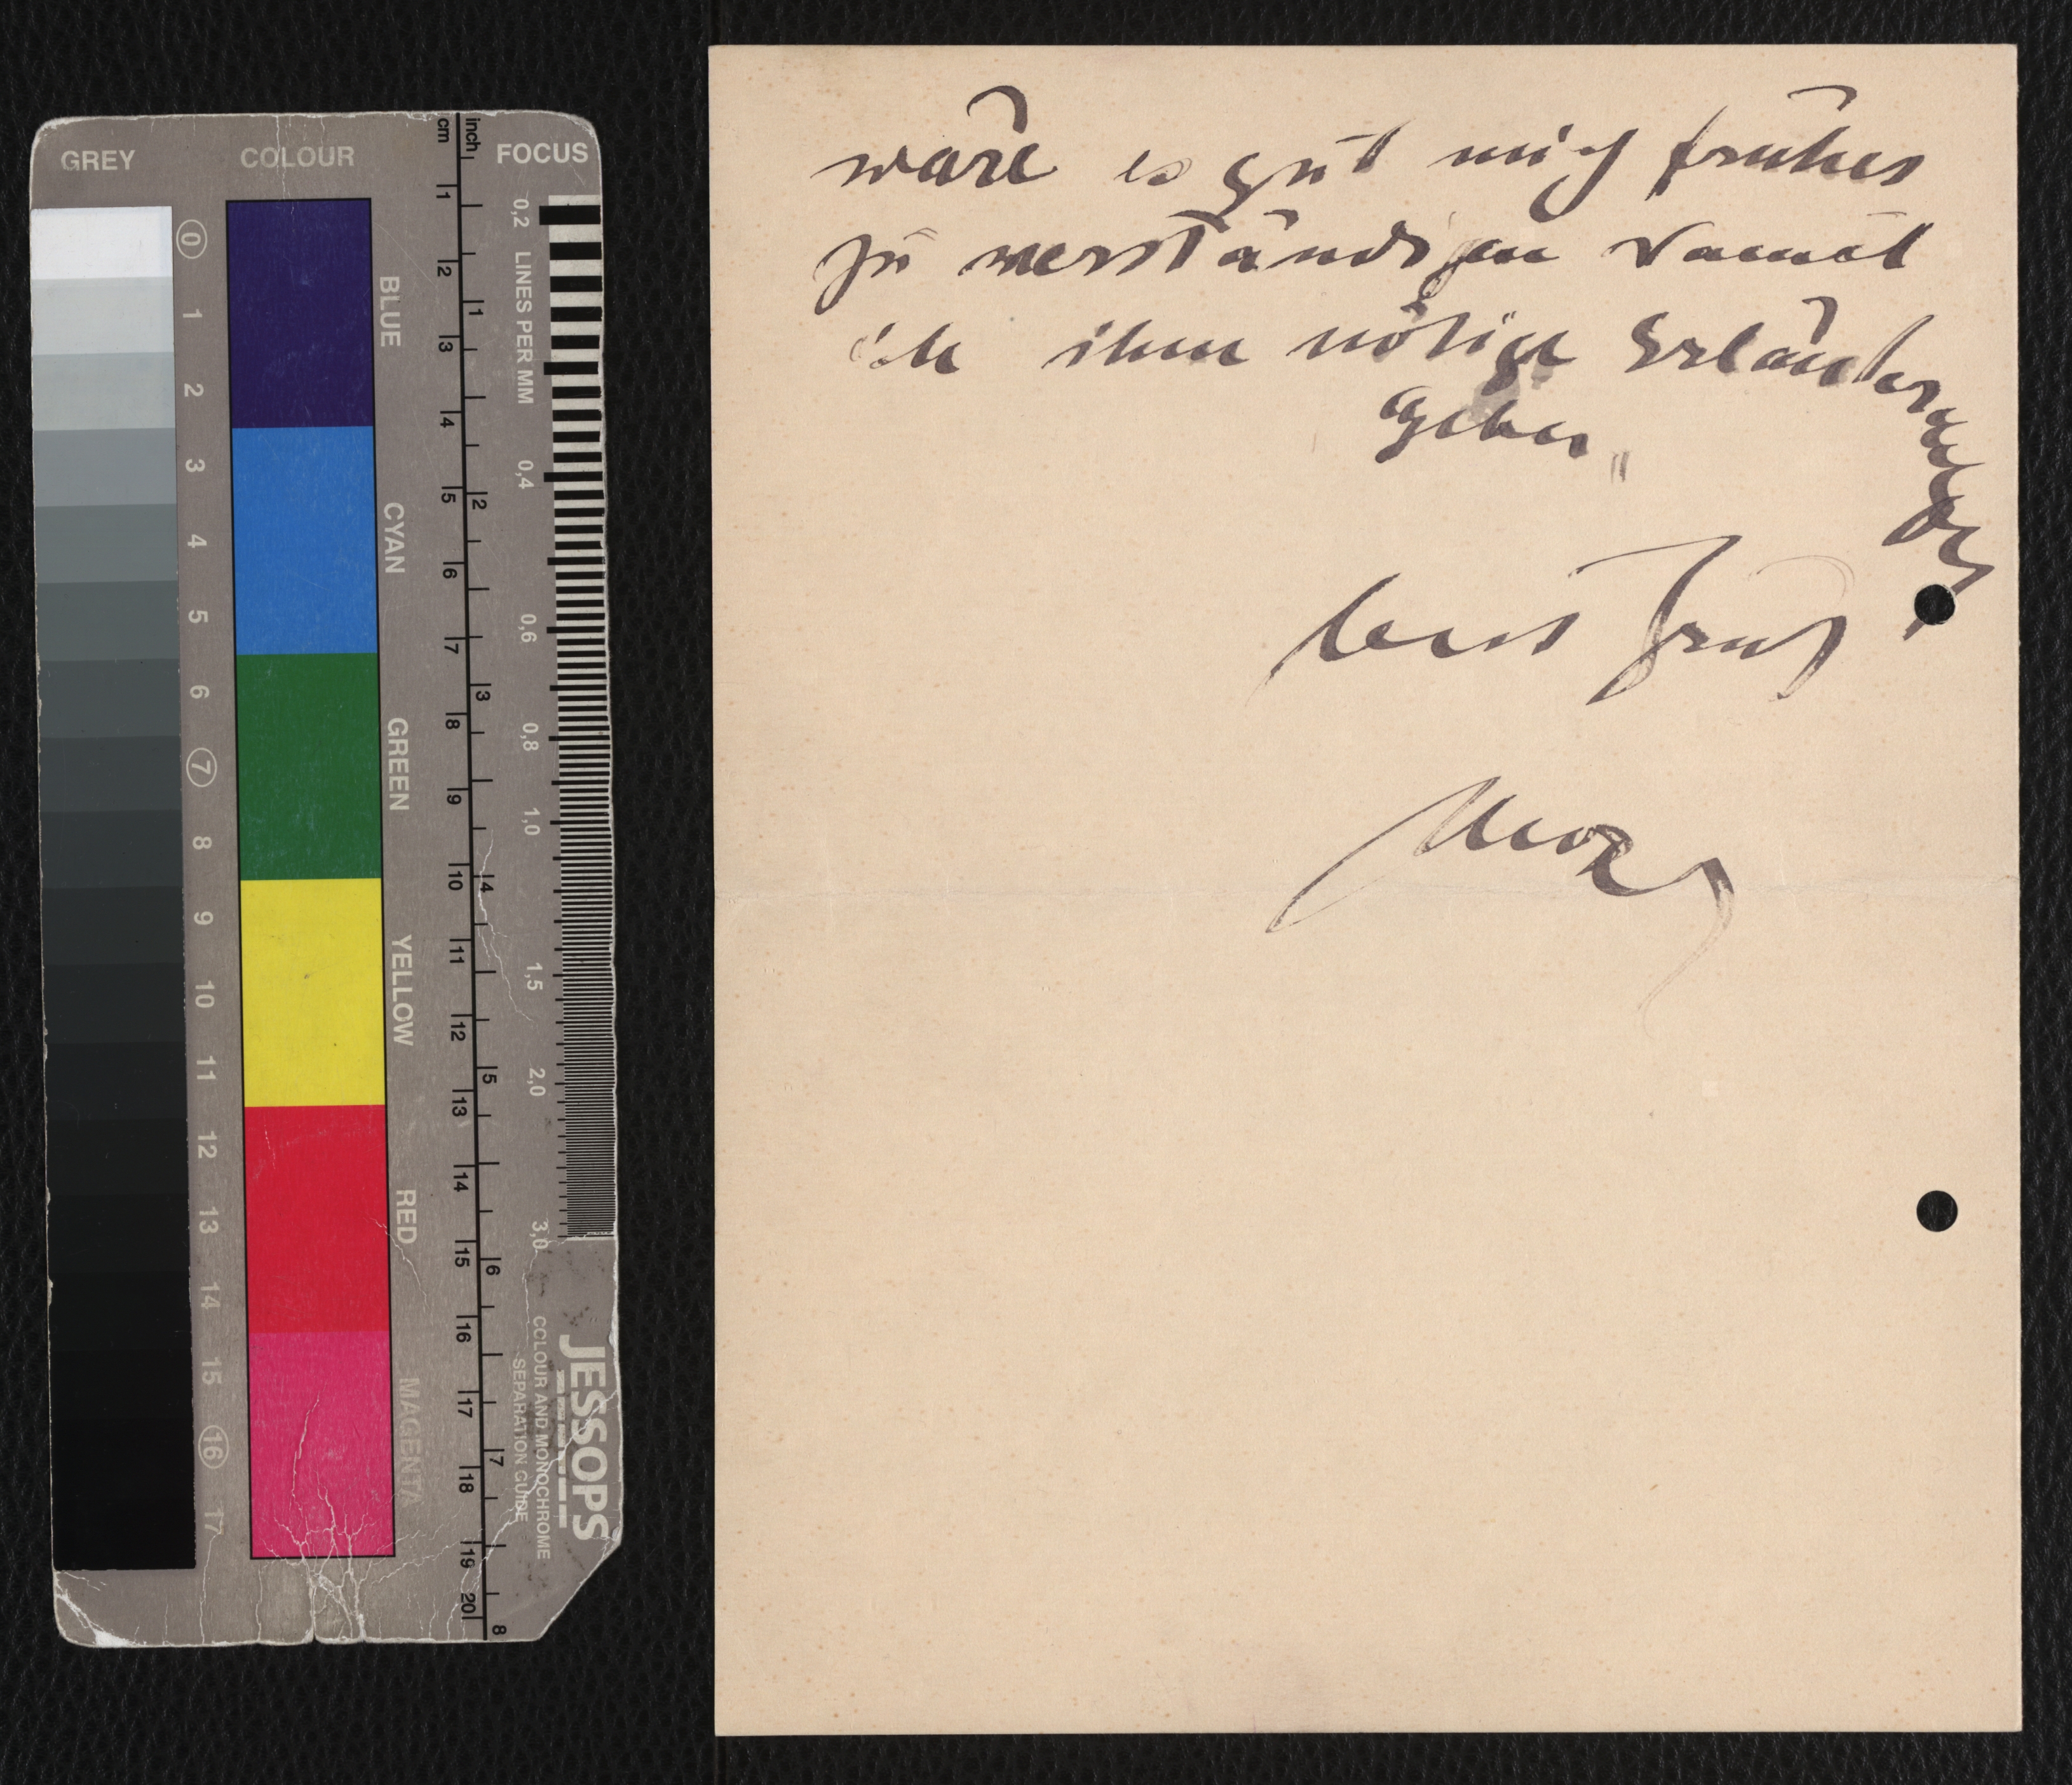 GREY COLOUR FOCUS
inch
cm
0 1 2 3 4 5 6 7 8 9 10 11 12 13 14 15 16 17
BLUE
CYAN
GREEN
YELLOW
RED
MAGENTA
1 2 3 4 5 6 7 8 9 10 11 12 13 14 15 16 17 18 19 20
1 2 3 4 5 6 7 8
0,2 LINES PER MM 0,4 0,6 0,8 1,0 1,5 2,0 3,0
JESSOPS
COLOUR AND MONOCHROME
SEPARATION GUIDE
wäre es gut mich früher
zu verständigen damit
ich ihm nötige Erläuterungen
geben